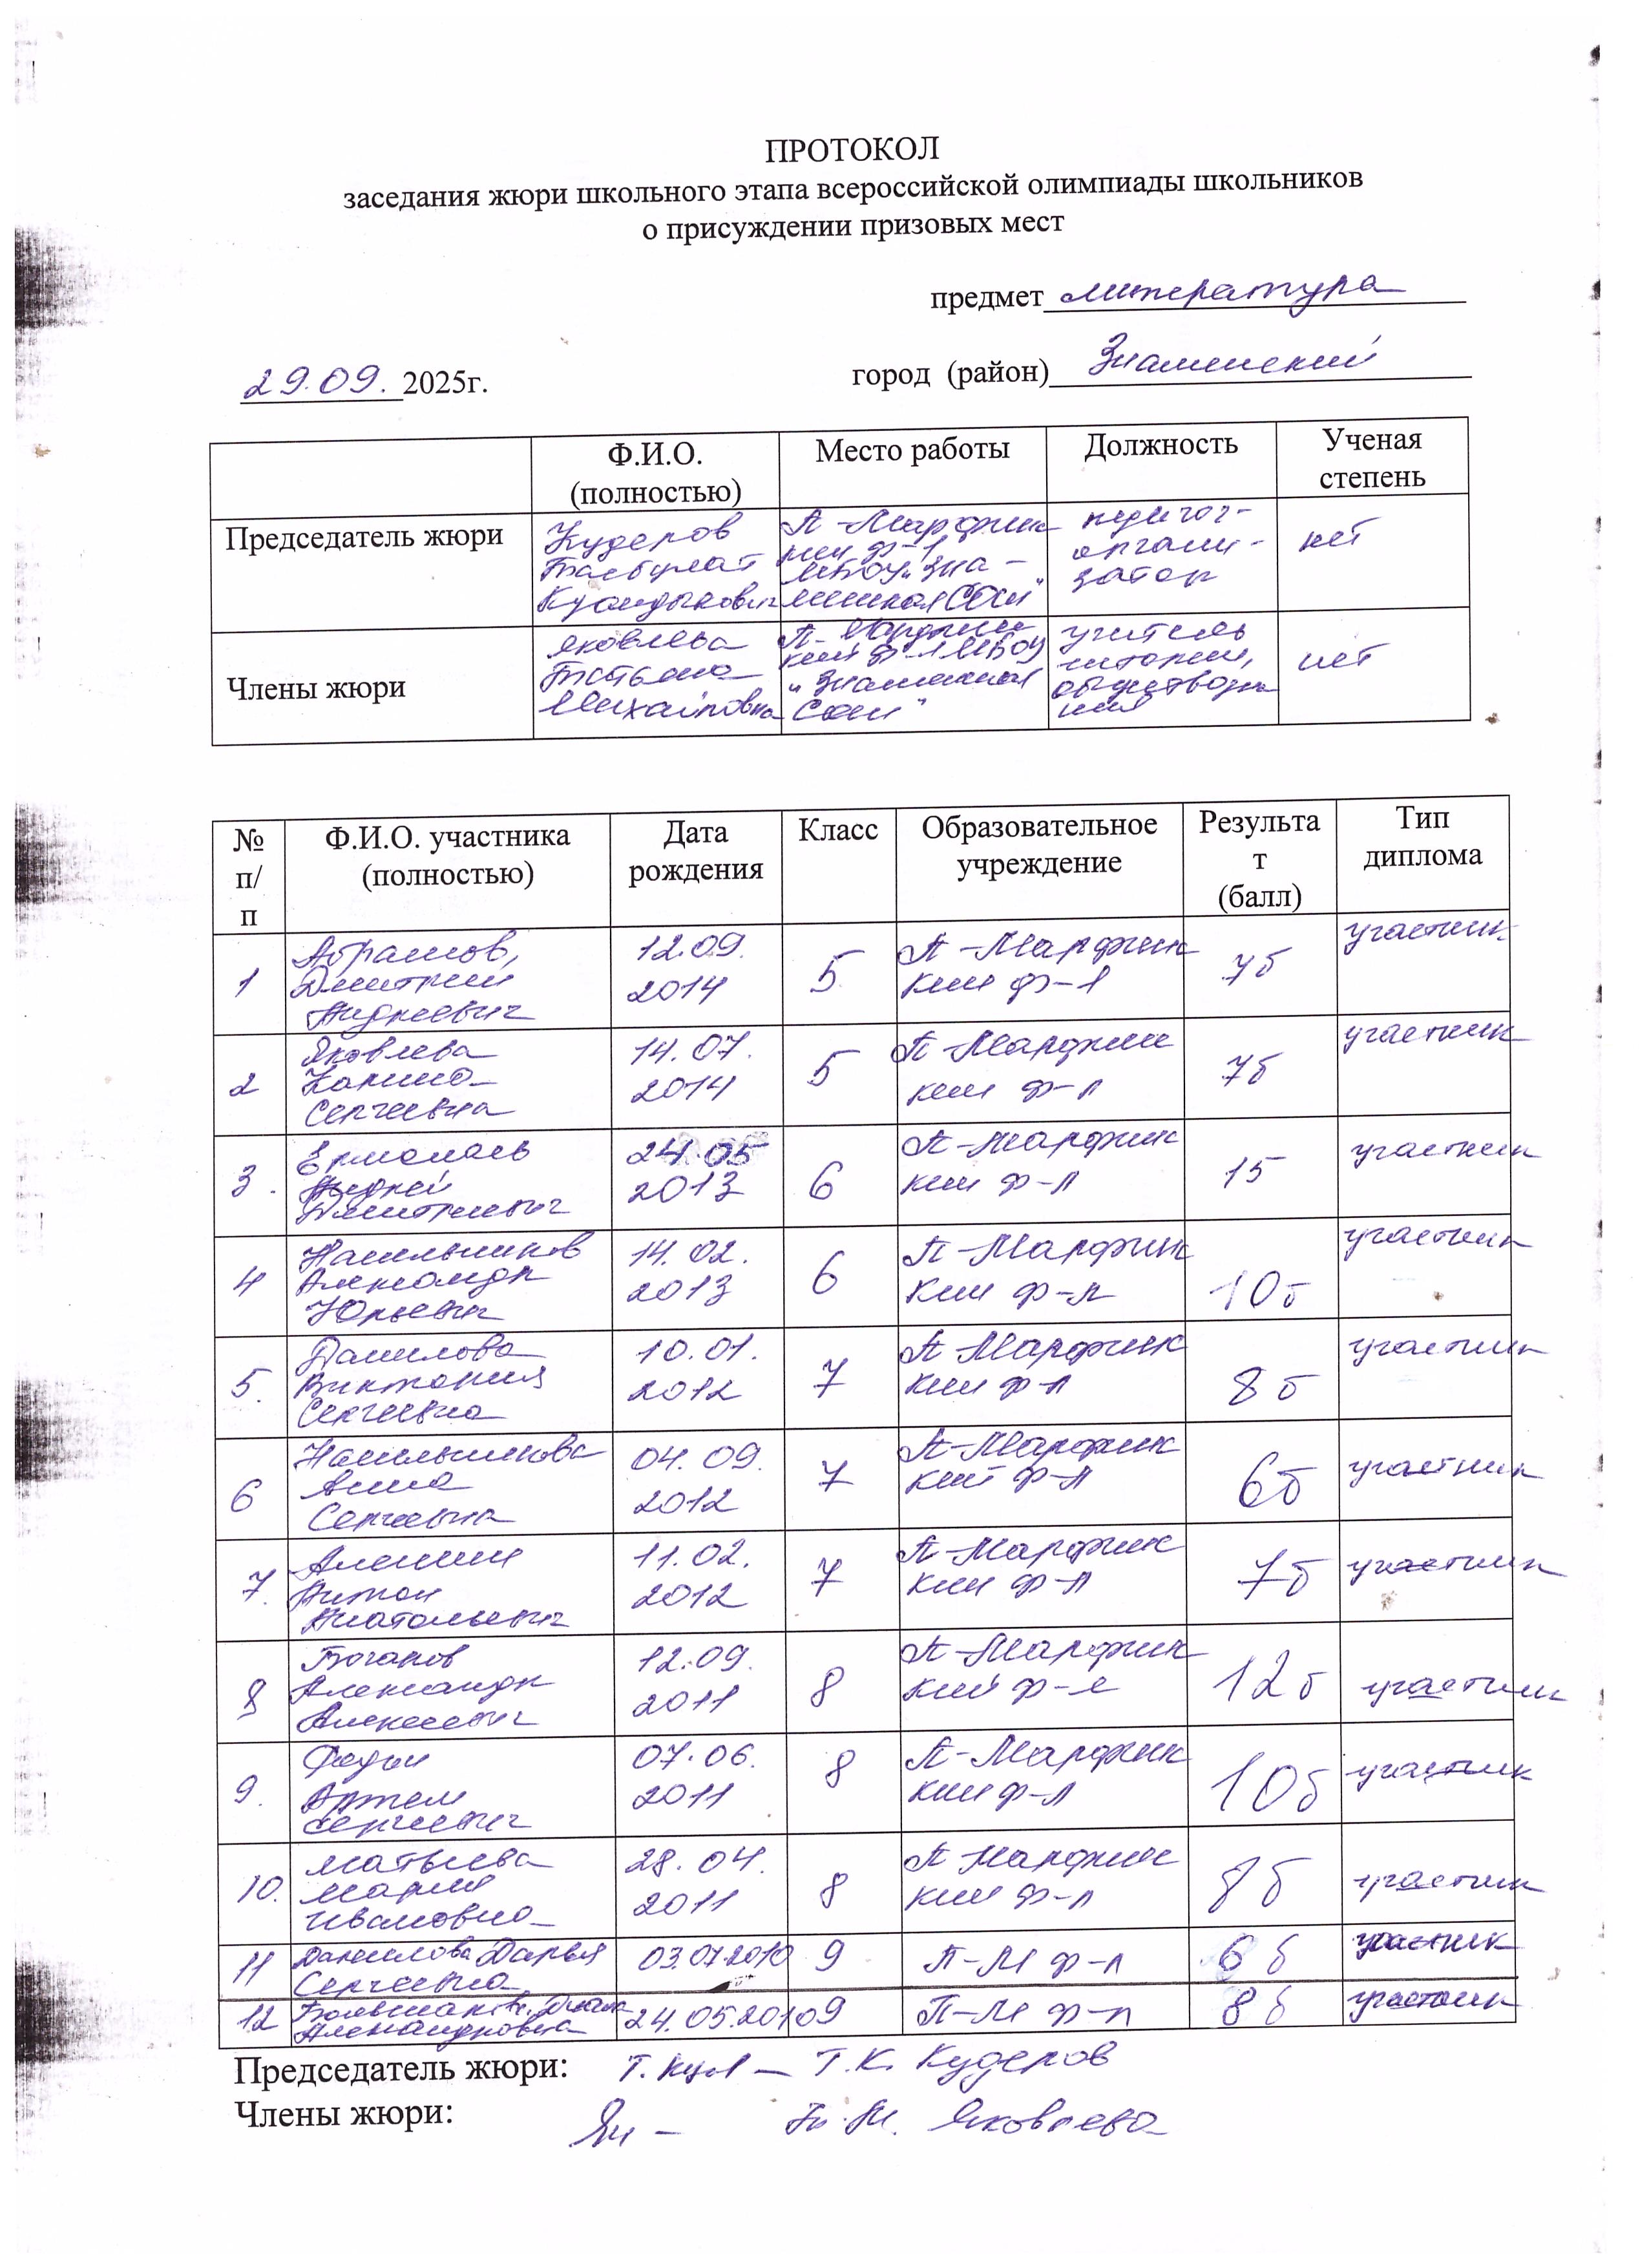 ПРОТОКОЛ
заседания жюри школьного этапа всероссийской олимпиады школьников
о присуждении призовых мест
предмет литература
29.09. 2025г.
город (район) Знаменский
Ф.И.О. (полностью) Место работы Должность Ученая степень
Председатель жюри
Кудеров
Тасбулат
Куандыкович
П-Марфин
кий ф-л
МБОУ "Зна-
менская СОШ"
педагог-
органи-
затор
нет
Члены жюри
Яковлева
Татьяна
Михайловна
П-Марфин
кий ф-л МБОУ
"Знаменская
СОШ"
учитель
истории,
обществозна
ния
нет
№ п/п Ф.И.О. участника (полностью) Дата рождения Класс Образовательное учреждение Результат (балл) Тип диплома
1 Абрамов, Дмитрий Андреевич 12.09. 2014 5 П-Марфин кий ф-л 7б участник
2 Яковлева Карина Сергеевна 14.07. 2014 5 П-Марфин кий ф-л 7б участник
3. Ермолаев Андрей Дмитриевич 24.05 2013 6 П-Марфин кий ф-л 15 участник
4 Насильников Александр Юрьевич 14.02. 2013 6 П-Марфин кий ф-л 10б участник
5. Данилова Виктория Сергеевна 10.01. 2012 7 П-Марфин кий ф-л 8б участник
6 Насильникова Анна Сергеевна 04.09. 2012 7 П-Марфин кий ф-л 6б участник
7. Аленин Антон Анатольевич 11.02. 2012 7 П-Марфин кий ф-л 7б участник
8 Богаров Александр Алексеевич 12.09. 2011 8 П-Марфин кий ф-л 12б участник
9. Федин Артем Сергеевич 07.06. 2011 8 П-Марфин кий ф-л 10б участник
10. Матвеева Мария Ивановна 28.04. 2011 8 П-Марфин кий ф-л 8б участник
11 Данилова Дарья Сергеевна 03.07.2010 9 П-М ф-л 6б участник
12 Александровна 24.05.2010 9 П-М ф-л 8б участник
Председатель жюри: Т.К. Кудеров
Члены жюри: Т.М. Яковлева